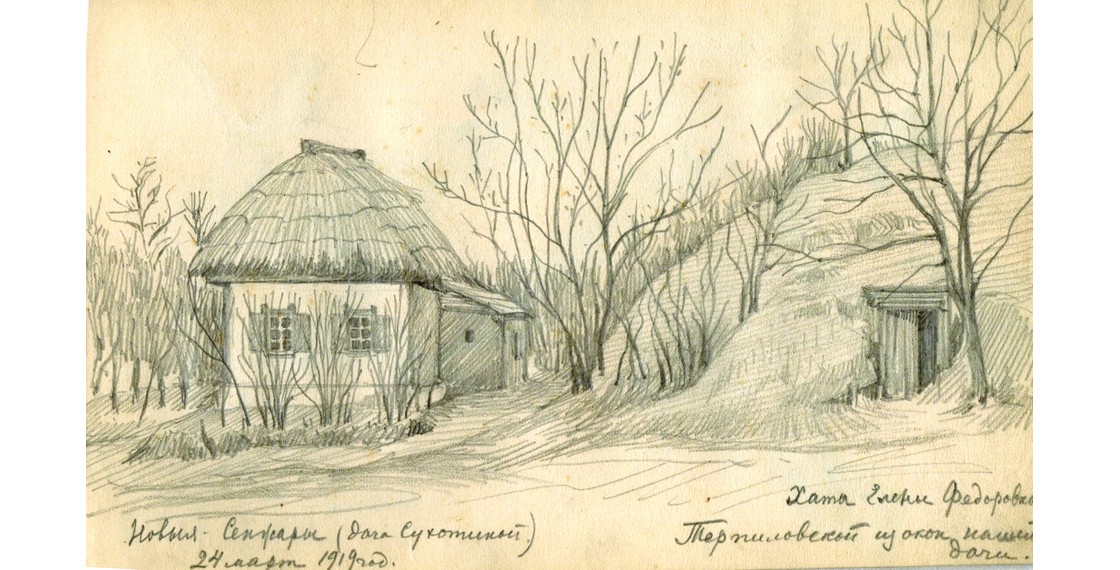 Новыя-Сенжары (дача Сухотиной.)
24 март 1919 год.
Хата Елены Федоровны
Терпиловской из окон нашей
дачи.